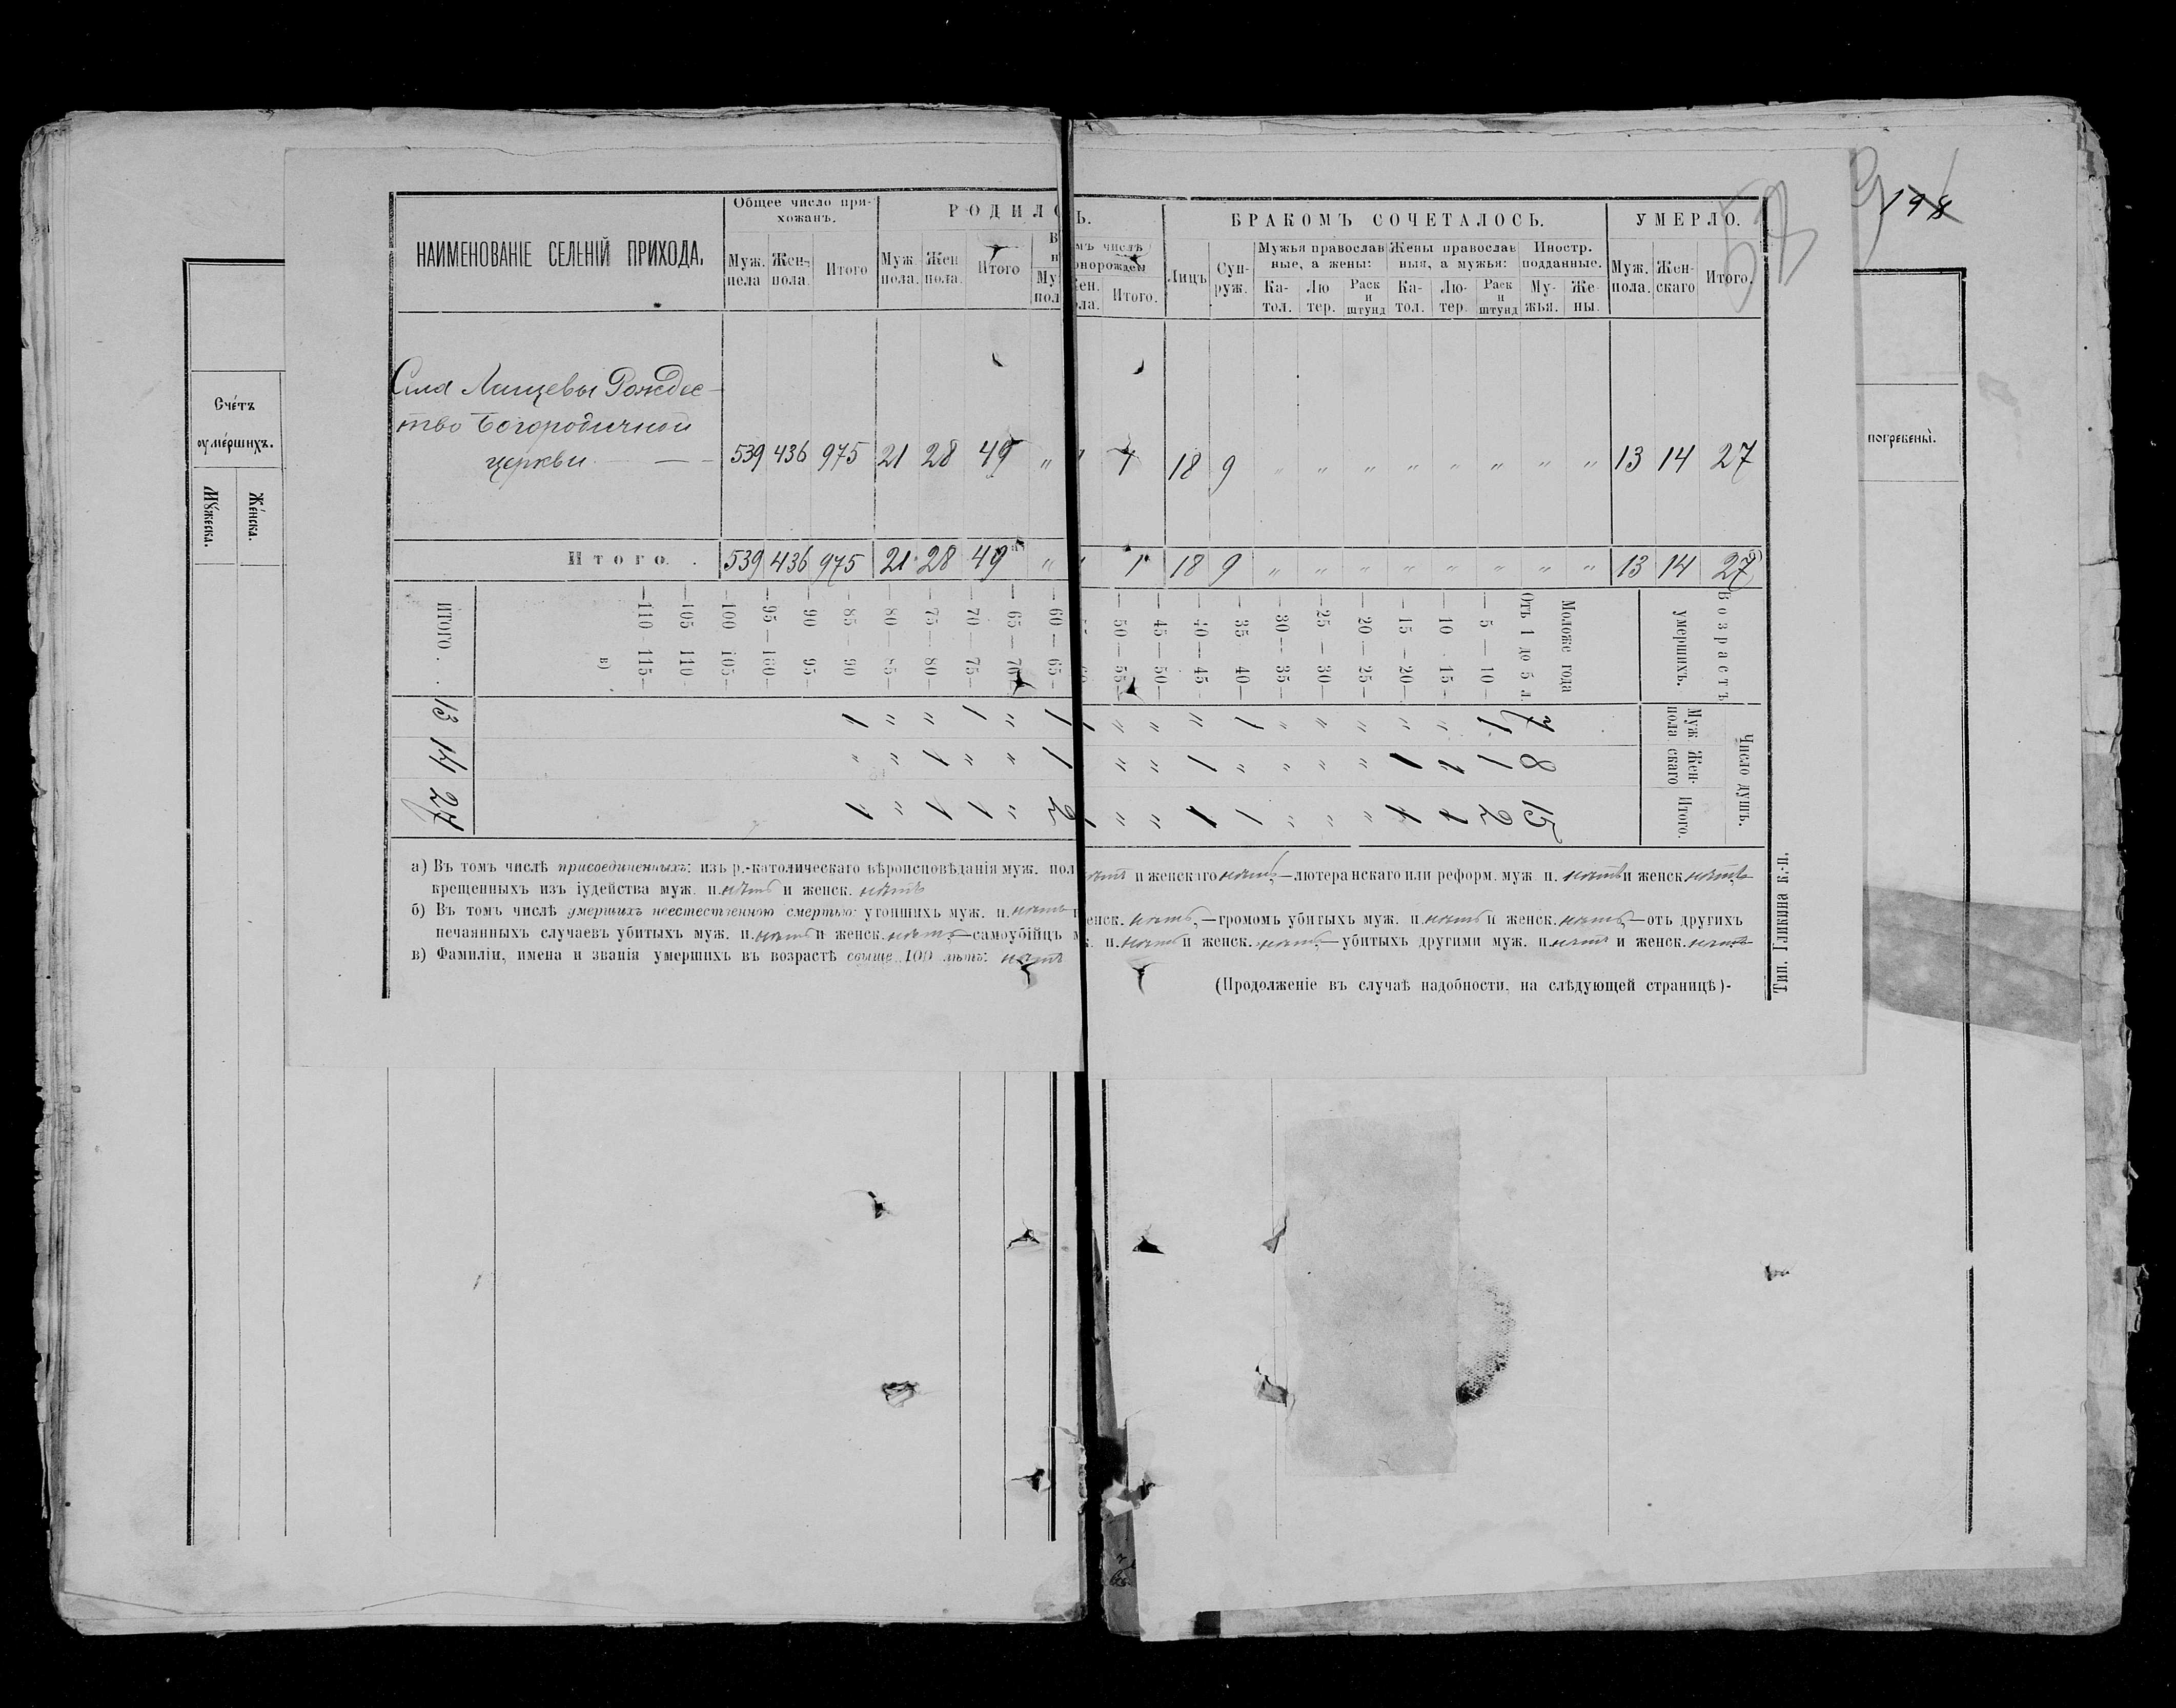 198
57
НАИМЕНОВАНІЕ СЕЛЕНІЙ ПРИХОДА.
Общее число при-
хожанъ.
Муж. пола
Жен. пола.
Итого
РОДИЛОСЬ.
Муж. пола.
Жен пола.
Итого
мъ числѣ
Итого.
БРАКОМЪ СОЧЕТАЛОСЬ.
Лицъ
Суп-
руж.
Мужья православ
ные, а жены:
Жены православ
ныя, а мужья:
Иностр.
подданные.
Ка-
тол.
Лю
тер.
Раск
и
штунд
Ка-
тол.
Лю-
тер.
Раск
и
штунд
Му-
жья.
Же
ны.
УМЕРЛО.
Муж.
пола.
Жен-
скаго
Итого.
Счéтъ
оумéршихъ.
Мꙋжеска.
Жéнска.
погребены̀.
Села Лищевы Рождес-
тво Богородичной
церкви 539 436 975 21 28 49 " 1 1 18 9 " " " " " " " " 13 14 27
Итого. 539 436 975 21 28 49 а) " 1 1 18 9 " " " " " " " " 13 14 27 б)
Возрастъ
умершихъ.
Число душъ.
Муж пола
Жен-скаго
Итого.
Моложе года 7 8 15
Отъ 1 до 5 л. 1 1 2
— 5 — 10 —
— 10 — 15 —
— 15 — 20 —
— 20 — 25 —
— 25 — 30 —
— 30 — 35 —
— 35 — 40 —
— 40 — 45 —
— 45 — 50 —
— 50 — 55 —
— 60 — 65 — 1 1 2
— 65 — 70 — " " "
— 70 — 75 — 1 " 1
— 75 — 80 — " 1 1
— 80 — 85 — " " "
— 85 — 90 1 " 1
— 90 95
— 95 — 100 —
— 100 105 —
— 105 110 —
— 110 115 —
в)
ИТОГО . . 13 14 27
а) Въ томъ числѣ присоединенныхъ: изъ р.-католическаго вѣроисповѣданія муж. пол нѣтъ и женскаго нѣтъ,—лютеранскаго или реформ. муж. п. нѣтъ и женск. нѣтъ,
крещенныхъ изъ іудейства муж. п. нѣтъ и женск. нѣтъ
б) Въ томъ числѣ умершихъ неестественною смертью: утопшихъ муж. п. нѣтъ женск. нѣтъ,—громомъ убитыхъ муж. п. нѣтъ и женск. нѣтъ—отъ другихъ
нечаянныхъ случаевъ убитыхъ муж. п. нѣтъ и женск. нѣтъ—самоубійцъ м п. нѣтъ и женск. нѣтъ,—убитыхъ другими муж. п нѣтъ и женск. нѣтъ
в) Фамиліи, имена и званія умершихъ въ возрастѣ свыше 100 лѣтъ: нѣтъ
(Продолженіе въ случаѣ надобности, на слѣдующей страницѣ)-
Тип. Гликина к.-п.